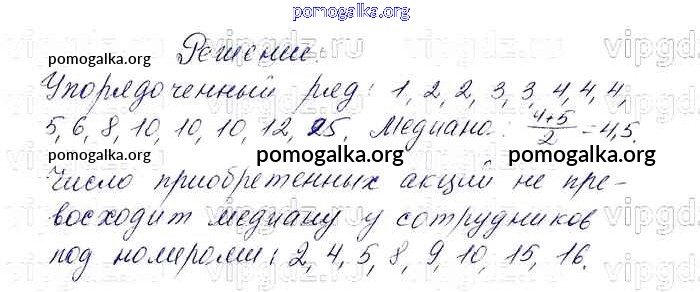 pomogalka.org
Решение.
pomogalka.org pomogalka.org
Упорядоченный ряд: 1, 2, 2, 3, 3, 4, 4, 4,
5, 6, 8, 10, 10, 10, 12, 25, Медиана: \frac{4+5}{2} = 4,5.
pomogalka.org pomogalka.org
Число приобретенных акций не пре-
восходит медиану у сотрудников
под номерами: 2, 4, 5, 8, 9, 10, 15, 16.